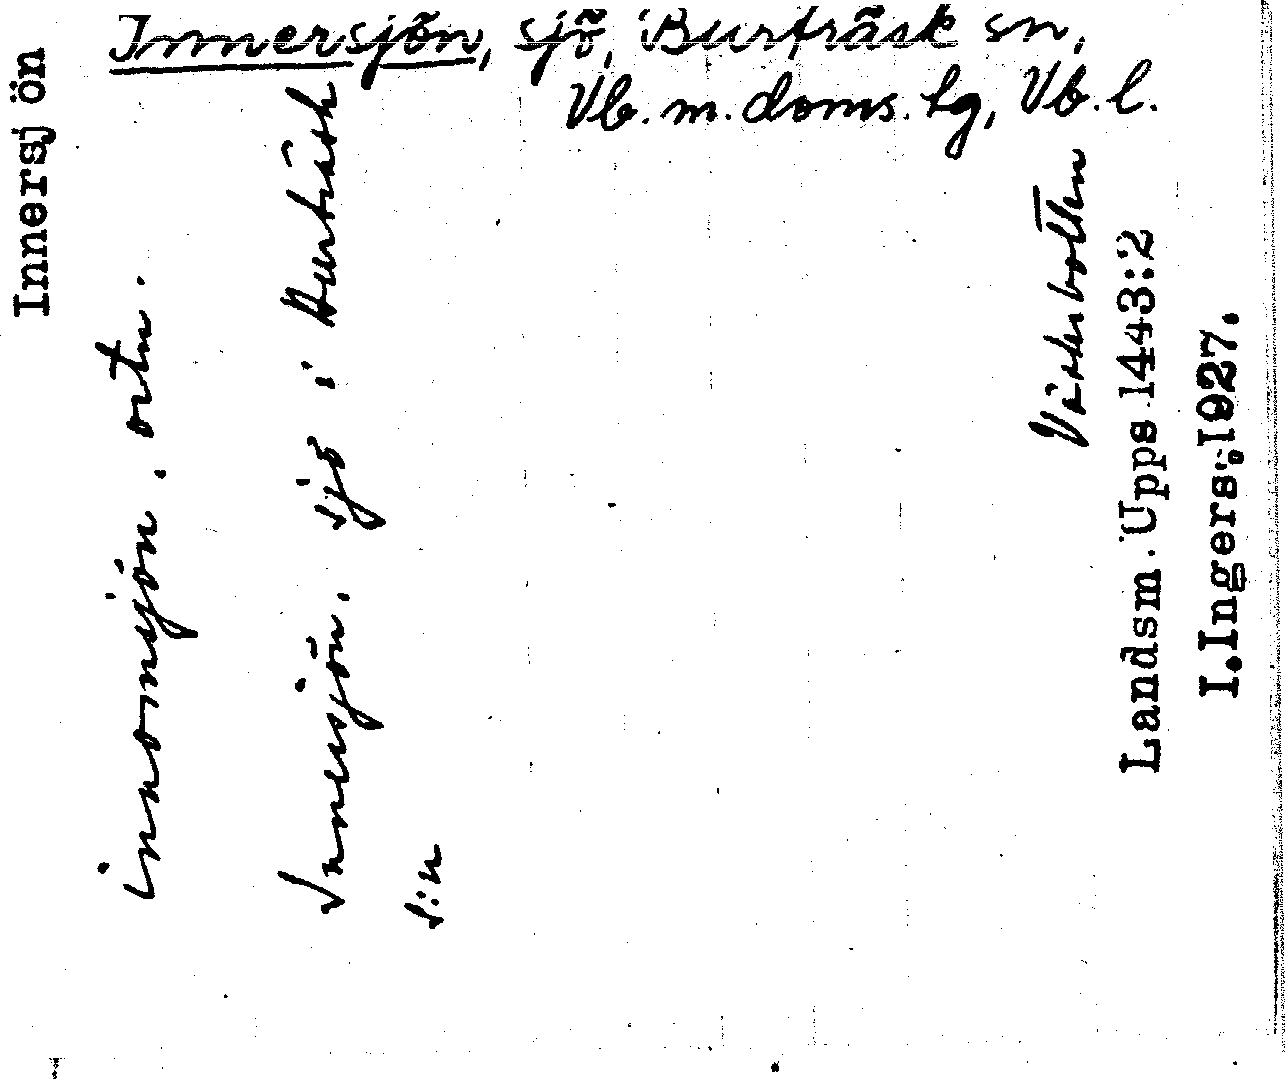 Innersjön, sjö, Burträsk sn,
Vb. m. doms. hg, Vb. l.
Innersjön
innomsjön, ortn.
Innersjön, sjö i Burträsk
s:n
Västerbotten
Landsm. Upps 1443:2
I. Ingers, 1927.